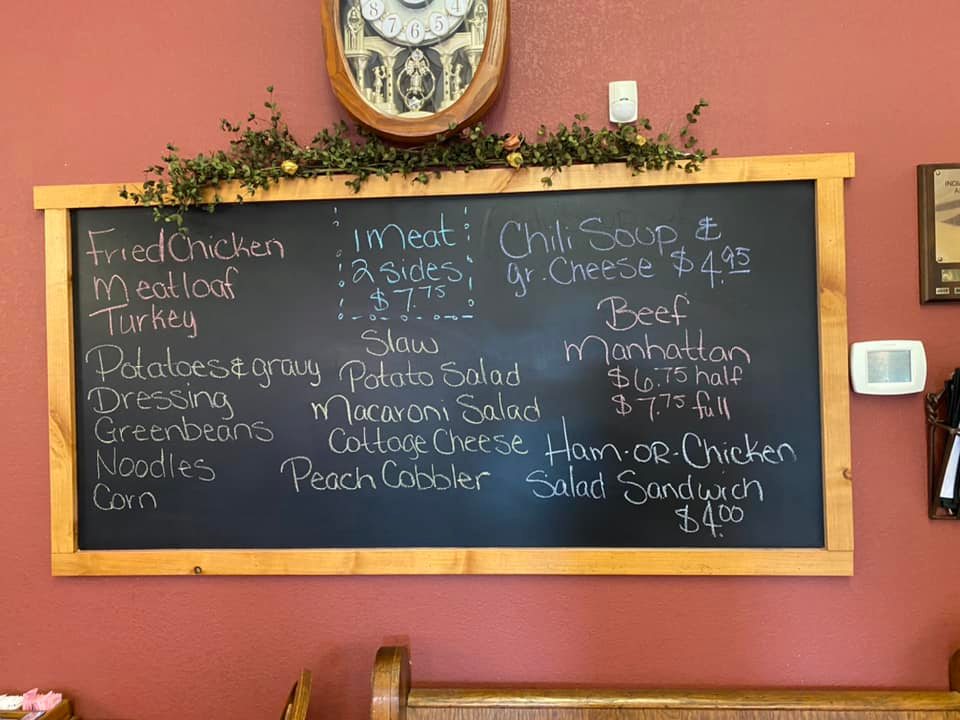 8 7 6 5 4
Fried Chicken
Meatloaf
Turkey
Potatoes & gravy
Dressing
Greenbeans
Noodles
Corn
1 Meat
2 sides
$7.75
Slaw
Potato Salad
Macaroni Salad
Cottage Cheese
Peach Cobbler
Chili Soup &
gr. Cheese $4.95
Beef
Manhattan
$6.75 half
$7.75 full
Ham-OR-Chicken
Salad Sandwich
$4.00